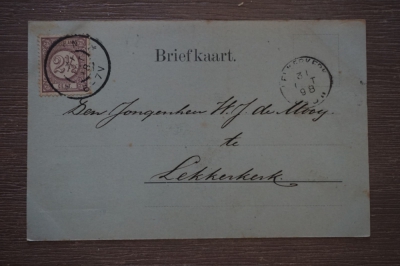 Briefkaart.
2½
31
98
Den Jongenheer W. J. de Mooy
te
Lekkerkerk.